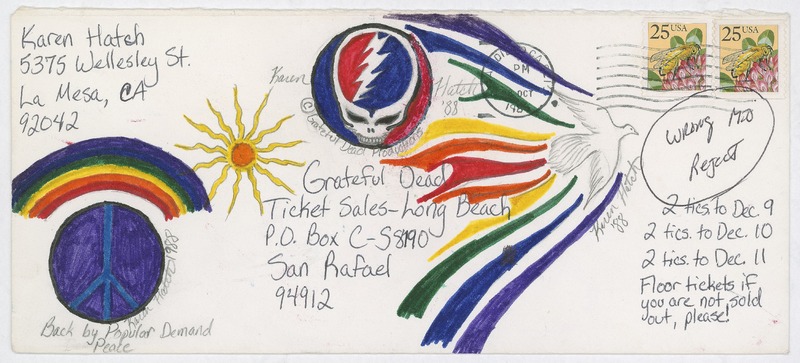 Karen Hatch
5375 Wellesley St.
La Mesa, CA
92042
Karen
Hatch
'88
© Grateful Dead Productions
PM
OCT
25 USA
25 USA
WRONG MO
REJECT
Grateful Dead
Ticket Sales-Long Beach
P.O. Box C-S8190
San Rafael
94912
Karen Hatch
'88
2 tics. to Dec. 9
2 tics. to Dec. 10
2 tics. to Dec. 11
Floor tickets if
you are not sold
out, please!
Karen Hatch 1988
Back by Popular Demand
Peace